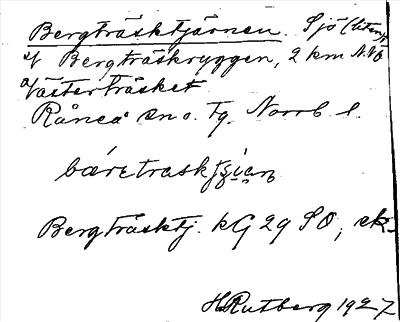 Bergträsktjärnen. Sjö (liten)
v/ Bergträskryggen, 2 km N.V.
Västerträsket
Råneå sn o. Tg. Norrb l.
Bergträsktj. kG 29 SO, ek.
H. Rutberg 1927